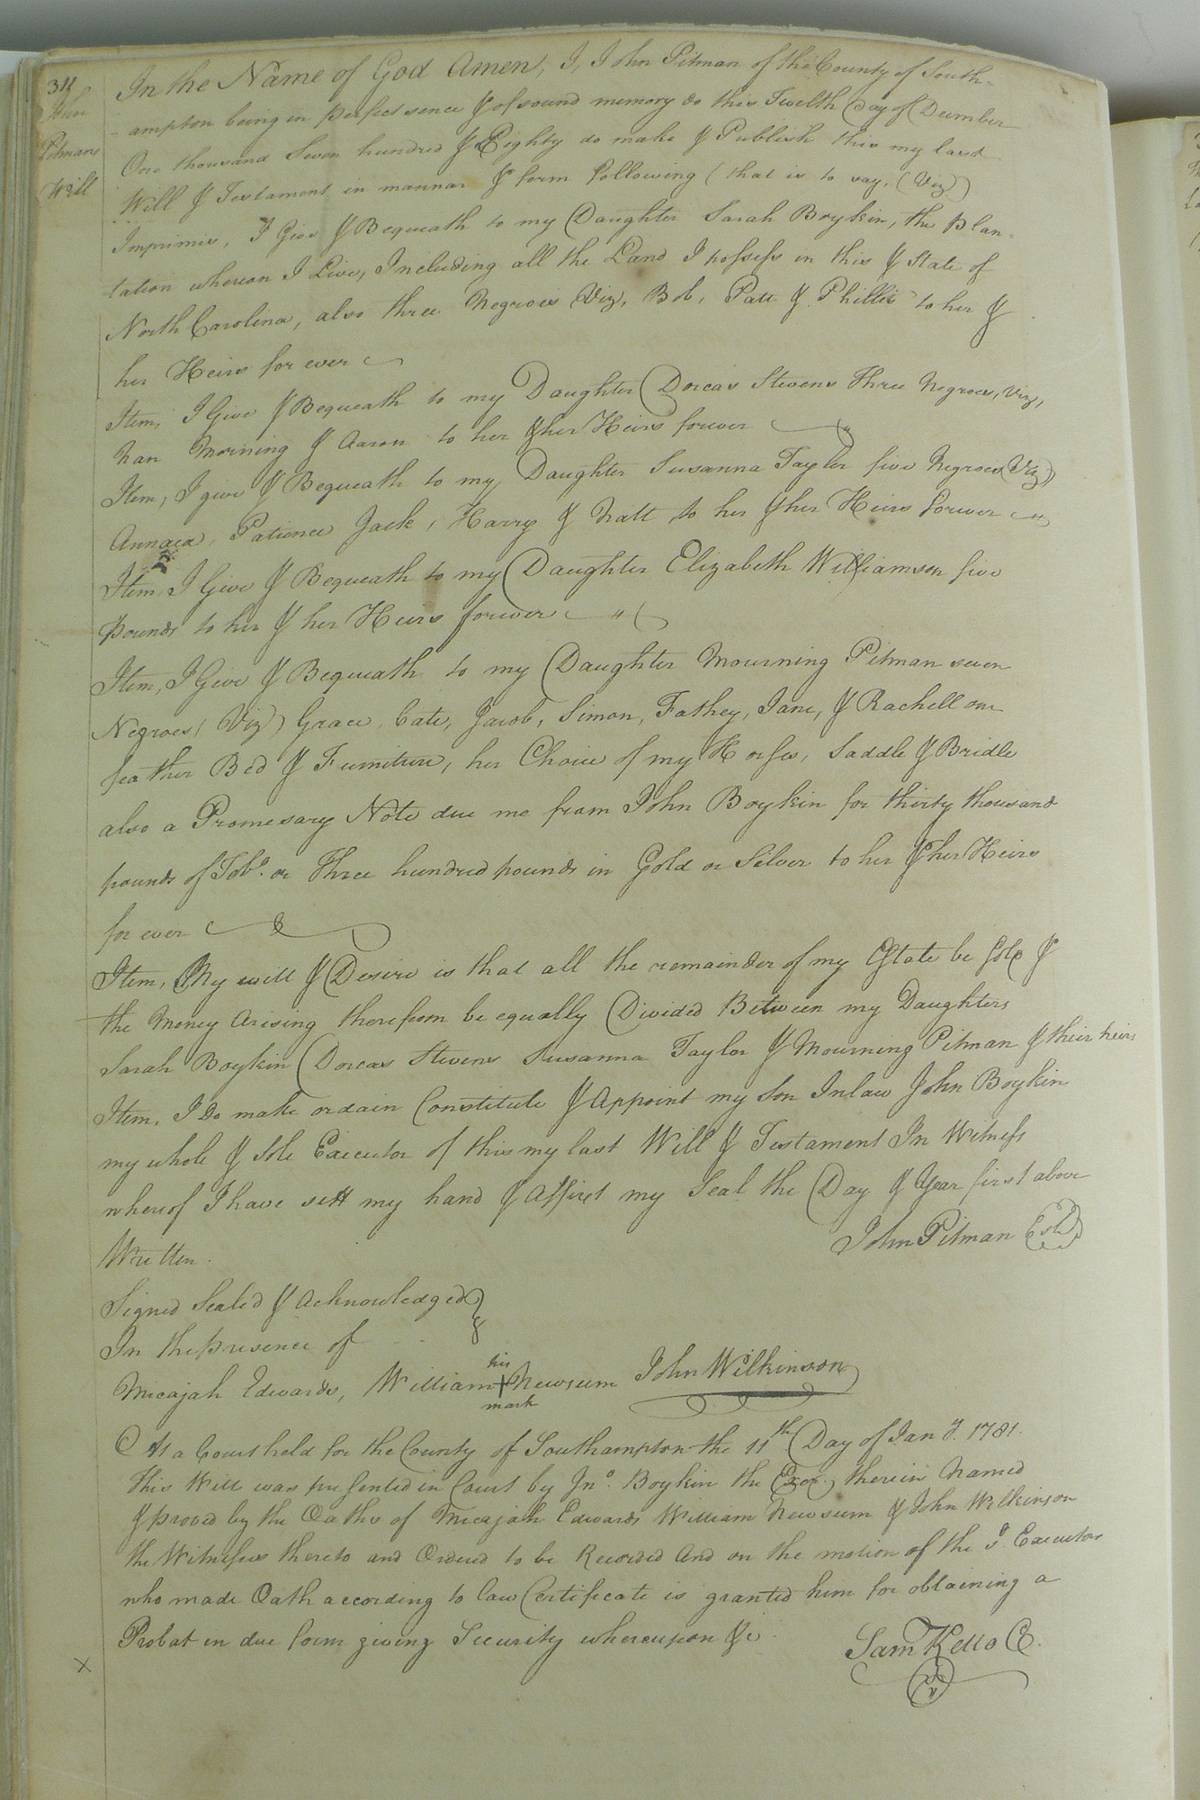 311
John
Pitmans
Will
In the Name of God Amen, I, John Pitman of the County of South-
ampton being in perfect sence & of sound memory do this Twelth Day of Deumber
One thousand Seven hundred & Eighty do make & Publish this my last
Will & Testament in mannar & form following (that is to say, (Viz)
Imprimis, I Give & Bequeath to my Daughter Sarah Boykin, the Plan-
tation whereon I Live, Including all the Land I possess in this & State of
North Carolina, also three Negroes Viz, Bob, Patt & Phillis to her &
her Heirs for ever
Item, I Give & Bequeath to my Daughter Dorcas Stevens Three Negroes, Viz,
Nan Morning & Aaron to her & her Heirs forever
Item, I give & Bequeath to my Daughter Susanna Taylor five Negroes (Viz)
Annaca, Patience Jack, Harry & Natt to her & her Heirs forever
Item, I Give & Bequeath to my Daughter Elizabeth Williamson five
pounds to her & her Heirs forever
Item, I Give & Bequeath to my Daughter Mourning Pitman seven
Negroes (Viz) Grace, Cate, Jacob, Simon, Fathey, Jane, & Rachell one
feather Bed & Furniture, her Choice of my Horses, Saddle & Bridle
also a Promesary Note due me from John Boykin for thirty thousand
pounds of Tobo. or Three hundred pounds in Gold or Silver to her & her Heirs
for ever
Item, My will & Desire is that all the remainder of my Estate be Sold &
the Money Arising therefrom be equally Divided Between my Daughters
Sarah Boykin Dorcas Stevens Susanna Taylor & Mourning Pitman & their heirs
Item, I Do make ordain Constitute & Appoint my Son Inlaw John Boykin
my whole & Sole Executor of this my last Will & Testament In Witness
whereof I have sett my hand & Affixt my Seal the Day & Year first above
Written.
John Pitman
Signed Sealed & Acknowledged
In the presence of
Micajah Edwards, William his + mark Newsum John Wilkinson
At a Court held for the County of Southampton the 11th Day of Jany. 1781.
This Will was presented in Court by Jno. Boykin the Exor. therein Named
& proved by the Oaths of Micajah Edwards William Newsum & John Wilkinson
the Witnesses thereto and Ordered to be Recorded And on the motion of the sd. Executor
who made Oath according to law Certificate is granted him for obtaining a
Probat in due form giving Security whereupon &c.
Sam Kello C.
X